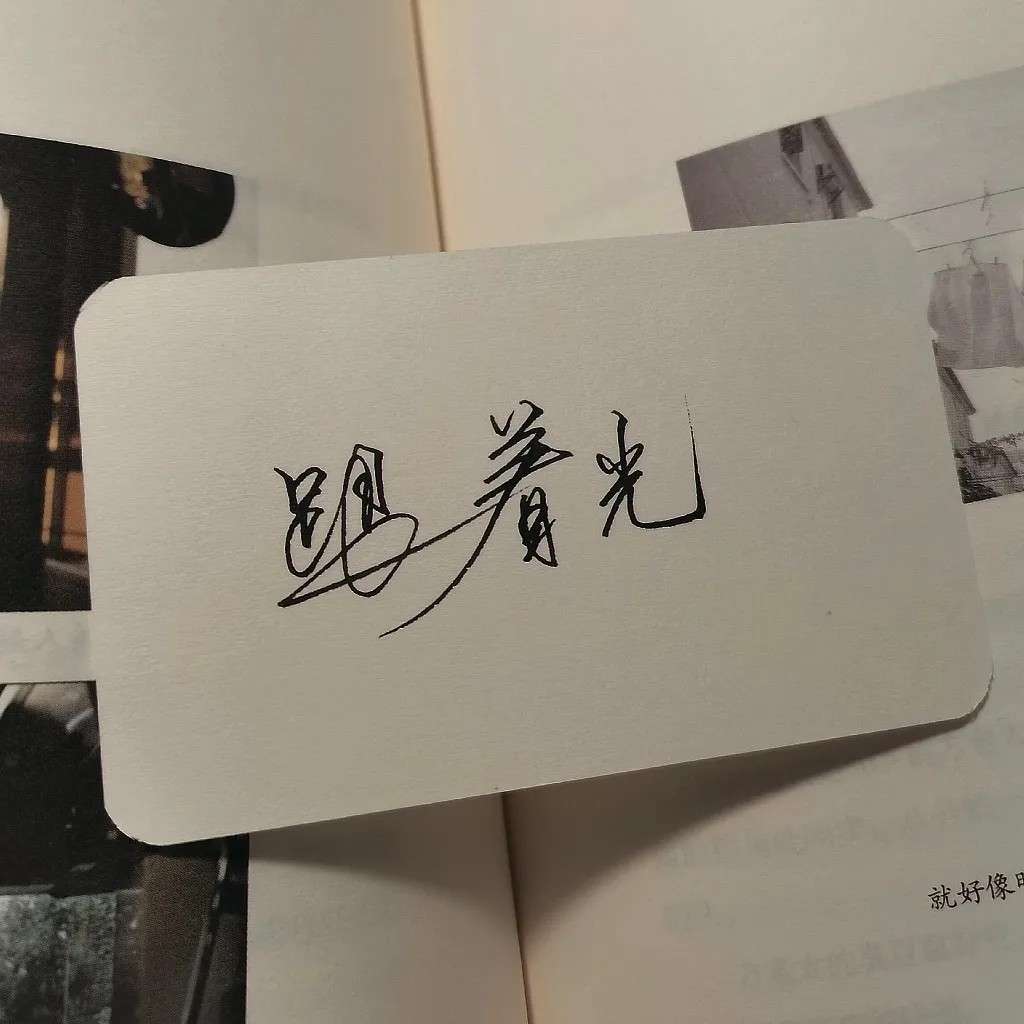 跟着光
就好像